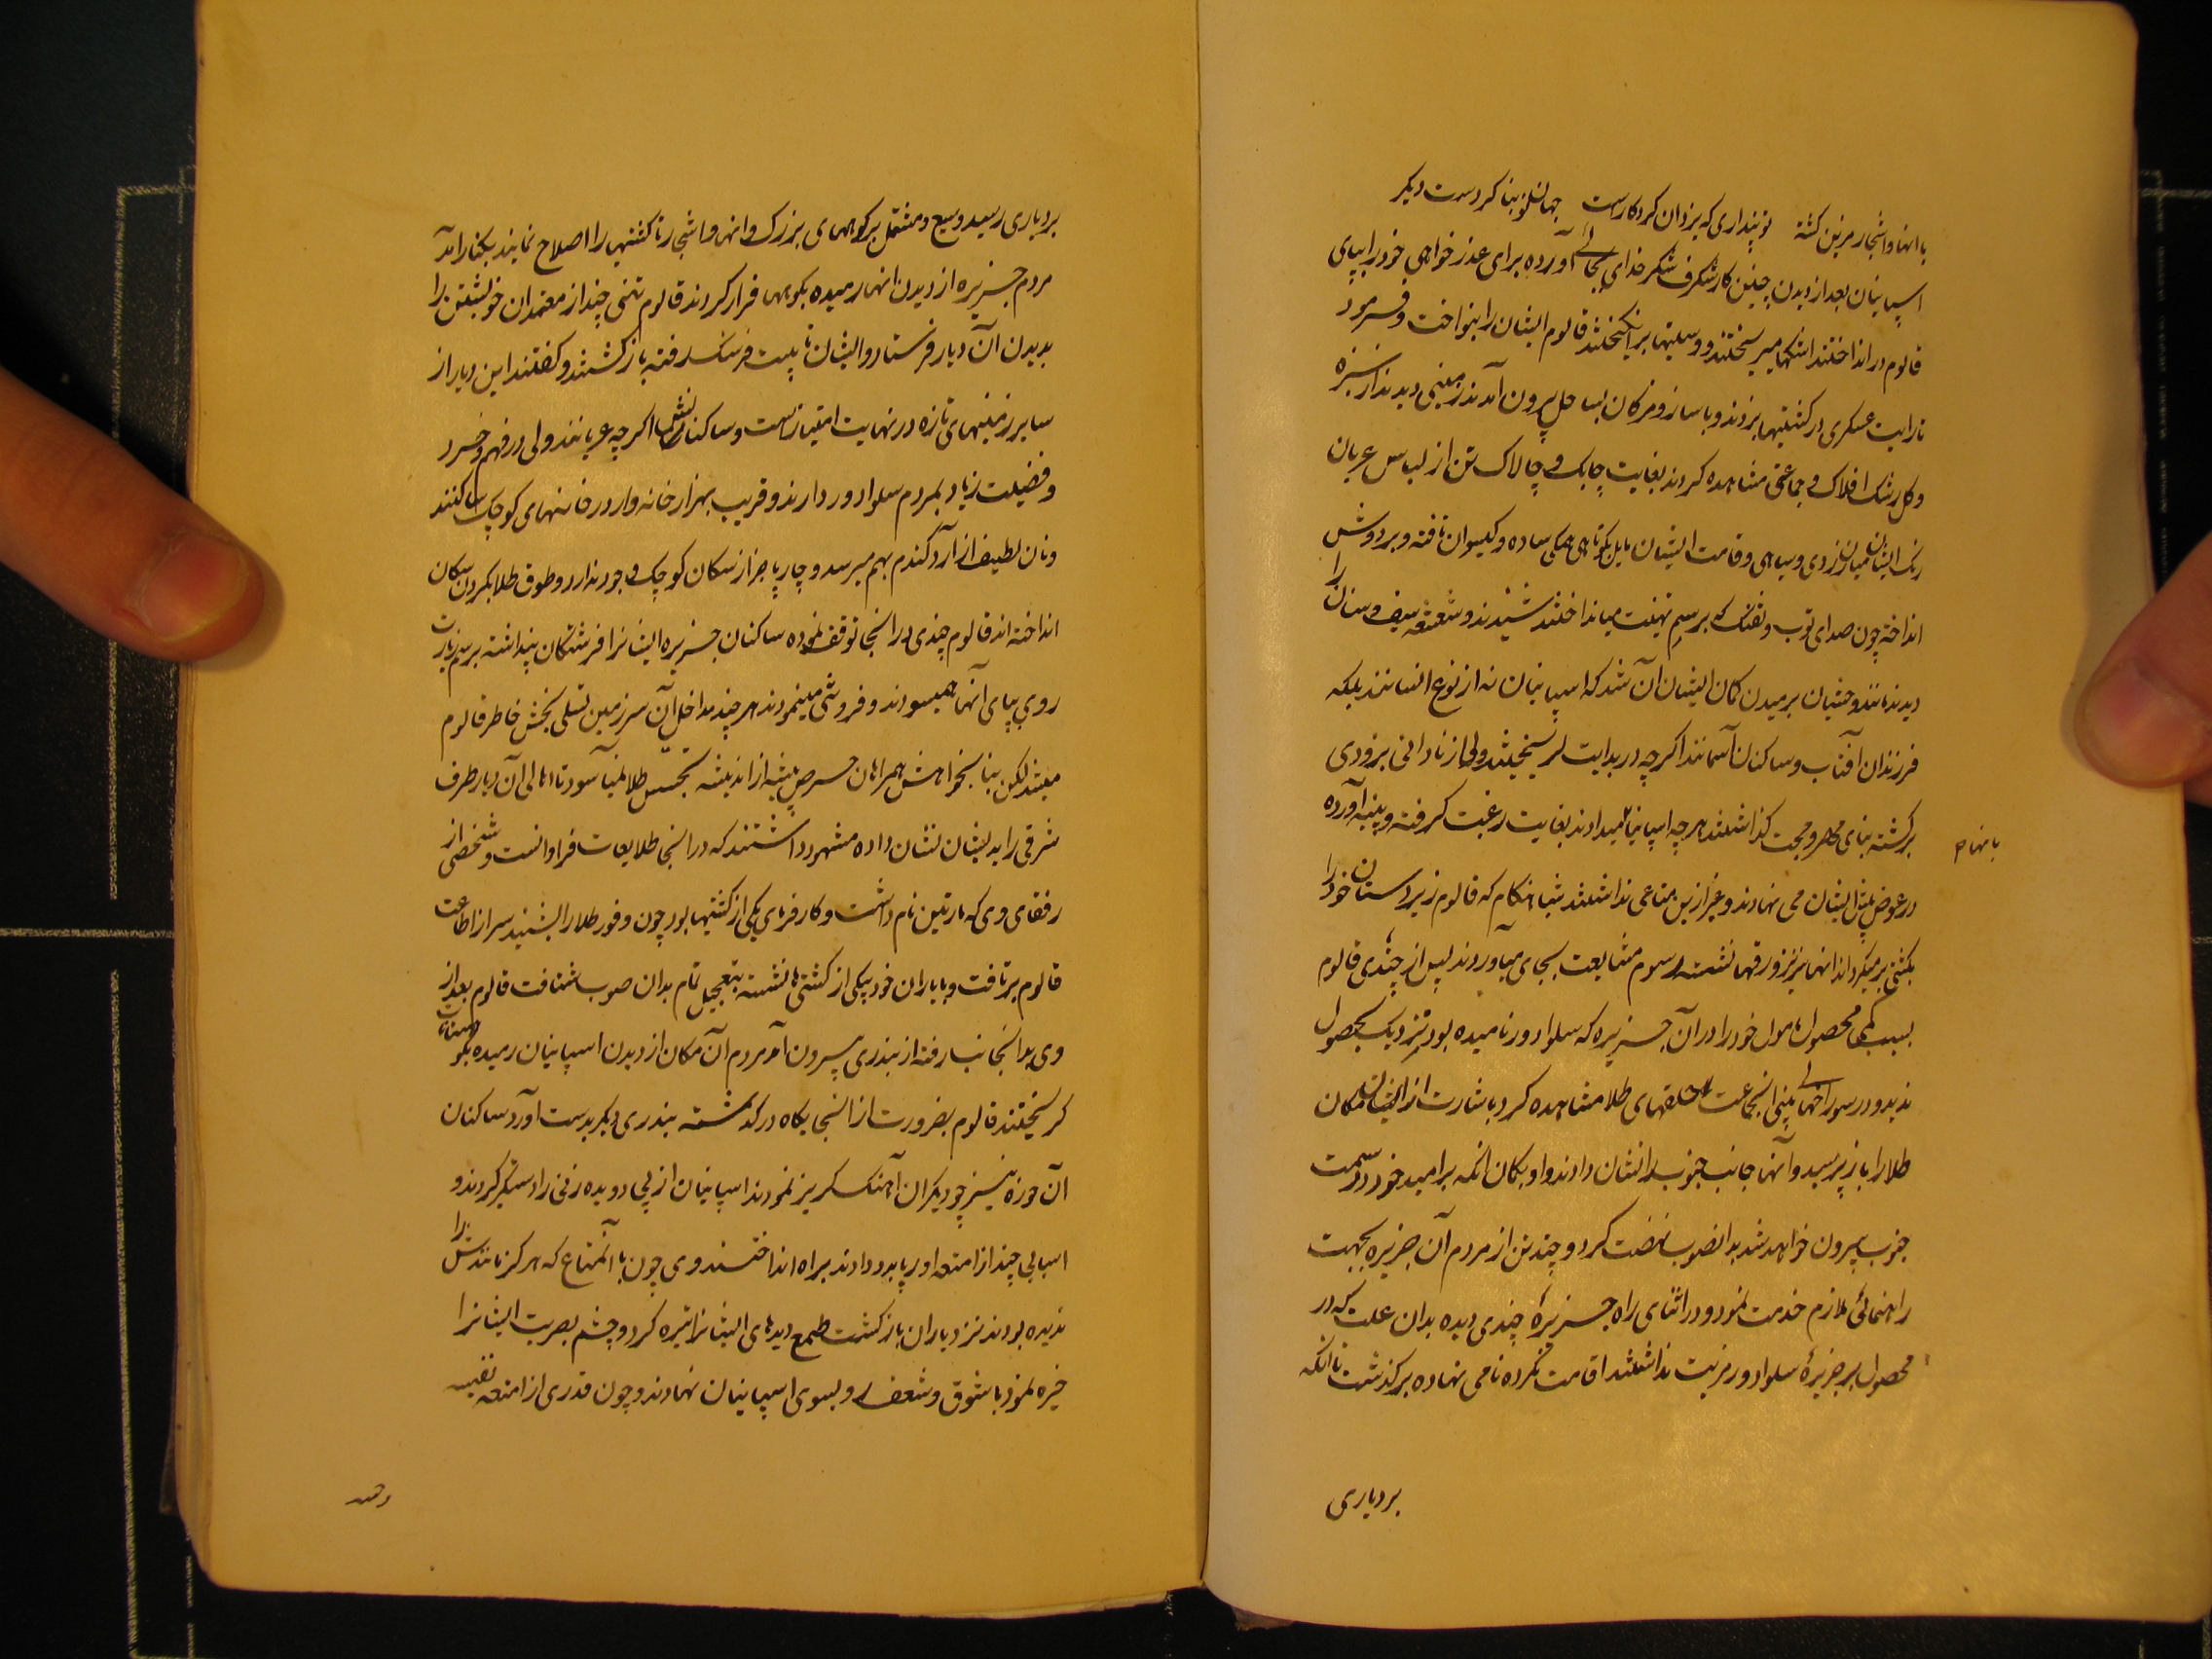 بانهار و اشجار مزین گشته تو پنداری که یزدان کردکارست جهانی نو بنا کردست دیگر
اسپانیان بعد از دیدن چنین کار شگرف شکر خدای بجای آورده برای عذرخواهی خود را بپای
قالوم در انداختند اشکها میریختند و وسیلتها برانگیختند قالوم ایشان را بنواخت و فرمود
تا رایت عسکری در کشتیها بزدند و با ساز و مزکان بساحل بیرون آمدند زمینی دیدند از سبزه
و کل رشک افلاک و جماعتی مشاهده کردند بغایت چابک و چالاک تن از لباس عریان
رنک ایشان میان زردی و سیاهی و قامت ایشان مایل بکوتاهی همکی ساده و کیسوان تافته و بر دوش
انداخته چون صدای توپ و تفنک که برسم تهنیت میانداختند شنیدند و شعشعه سیف و سنان را
دیدند مانند وحشیان برمیدن کمان ایشان آن شد که اسپانیان نه از نوع انسانند بلکه
فرزندان آفتاب و ساکنان آسمانند اکرچه در بدایت کریختند ولی از نادانی بزودی
برکشته بنای مهر و محبت کذاشتند هرچه اسپانیان میدادند بغایت رغبت کرفته و پنبه آورده
بانهام
در عوض پیش ایشان می نهادند و غیر ازین متاعی نداشتند شباهنکام که قالوم زیردستان خود را
بکشتی برمیکرداند انها نیز بزورقها نشسته رسوم مشایعت بجای میآوردند پس از چندی قالوم
بسبب کمی محصول مامول خود را در آن جزیره که سلوادور نامیده بود نزدیک بحصول
ندید و در سوراخهای بینی انجماعت حلقهای طلا مشاهده کرد باشارت از ایشان مکان
طلا را باز پرسید و آنها جانب جنوب را نشان دادند و او بکمان انکه برامید خود در سمت
جنوب بیرون خواهد شد بدانصوب نهضت کرد و چند تن از مردم آن جزیره بجهت
راهنمائی ملازم خدمت نمود و در اثنای راه جزیرهٔ چندی دیده بدان علت که در
محصول بر جزیرهٔ سلوادور مزیت نداشتند اقامت نکرده نامی نهاده برکذشت تا انکه
بر دیاری
بر دیاری رسید وسیع و مشتمل بر کوههای بزرک و انهار و اشجار تا کشتیها را اصلاح نمایند بکنار آمد
مردم جزیره از دیدن انها رمیده بکوهها فرار کردند قالوم تنی چند از معتمدان خویشتن را
بدیدن آن دیار فرستاد و ایشان تا بیست فرسنک رفته بازکشتند و کفتند این دیار از
سایر زمینهای تازه در نهایت امتیازست و ساکنانش اکرچه عریانند ولی در فهم و خرد
و فضیلت زیاد بمردم سلوادور دارند و قریب بهزار خانه وار در خانهای کوچک ساکنند
و نان لطیف از آرد کندم بهم میرسد و چارپا جز از سکان کوچک وجود ندارد و طوق طلا بکردن سکان
انداخته اند قالوم چندی در انجا توقف نموده ساکنان جزیره ایشانرا فرشتکان پنداشته برسم زیارت
روی بپای آنها میسودند و فروشی مینمودند هرچند مداخل آن سرزمین تسلی بخش خاطر قالوم
میشد لیکن بنا بخواهش همراهان حرص پیشه از اندیشه تجسس طلا نمیآسود تا اهالی آن دیار طرف
شرقی را بدیشان نشان داده مشهود داشتند که در انجا طلا بغایت فراوانست و شخصی از
رفقای وی که مارتین نام داشت و کارفرمای یکی از کشتیها بود چون وفور طلا را بشنید سر از اطاعت
قالوم برتافت و با یاران خود بیکی از کشتیها نشسته بتعجیل تمام بدان صوب شتافت قالوم بعد از
وی بدانجانب رفته از بندری بیرون آمد مردم آن مکان از دیدن اسپانیان رمیده بکوهستانات
کریختند قالوم بضرورت از انجایکاه درکذشته بندری دیکر بدست آورد ساکنان
آن حوزه نیز چو دیکران آهنک کریز نمودند اسپانیان از پی دویده زنی را دستکیر کردند و
اسبابی چند از امتعه اورپا بدو دادند براه انداختند وی چون با آنمتاع که هرکز مانندش را
ندیده بودند نزد یاران بازکشت طمع دیدهای ایشانرا تیره کرد و چشم بصیرت ایشانرا
خیره نمود با شوق و شعف رو بسوی اسپانیان نهادند و چون قدری از امتعه نفیسه